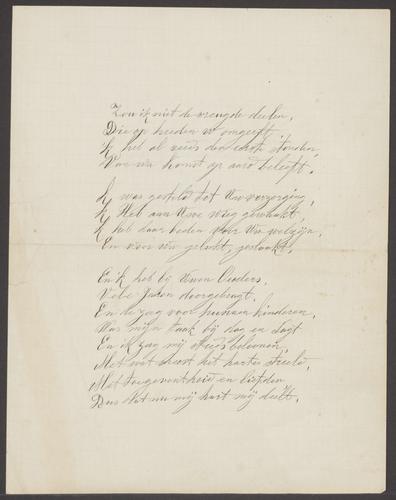 Zou ik niet de vreugde deelen,
Die op heeden U omgeeft,
Ik heb al reeds den eerste stonden,
Van uw komst op aard beleeft.
Ik was gesteld tot Uw verzorging,
Ik Heb aan Uwe wieg gewaakt,
Ik heb daar beden voor Uw welzijn,
En voor uw geluk, geslaakt.
En ik heb bij Uwen Ouders,
Vele Jaren doorgebragt.
En de zorg voor hunnen kinderen,
Was mijn taak bij dag en Nagt
En ik zag mij steeds beloonen,
Met wat het hartes streeld,
Met toegenentheid en liefden
Dus Wat nu mij hart mij deelt.